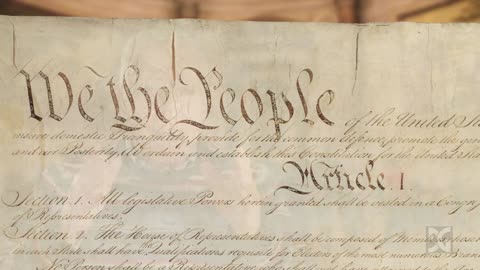 We the People of the United Sta
insure domestic Tranquility, provide for the common defence, promote the gene
and our Posterity, do ordain and establish this Constitution for the United Sta
Article. I.
Section. 1. All legislative Powers herein granted shall be vested in a Congre
of Representatives.
Section. 2. The House of Representatives shall be composed of Members chosen
in each State shall have Qualifications requisite for Electors of the most numerous Branch
No Person shall be a Representative who shall